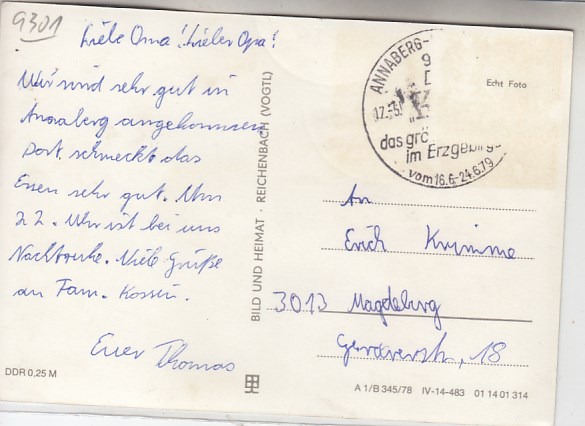 9301
Liebe Oma! Lieber Opa!
Wir sind sehr gut in
Annaberg angekommen
Dort schmeckt das
Essen sehr gut. Um
22. Uhr ist bei uns
Nachtruhe. Viele Grüße
an Fam. Kossin.
Euer Thomas
DDR 0,25 M
BILD UND HEIMAT · REICHENBACH (VOGTL)
Echt Foto
ANNABERG-
9
das grö
im Erzgebirge
vom 16.6.-24.6.79
An
Erich Krimme
3013 Magdeburg
18
A 1/B 345/78 IV-14-483 01 14 01 314